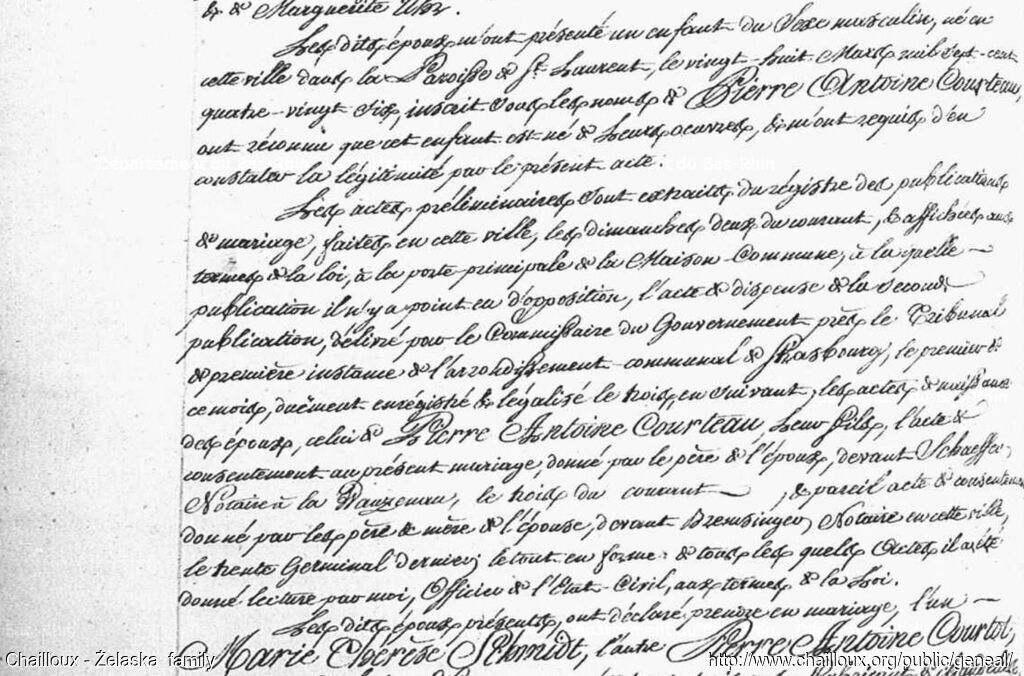 & de Marguerite
Les dits époux m'ont présenté un enfant du Sexe masculin, né en
cette ville dans la Paroisse de St. Laurent, le vingt-huit Mars mil sept-cent
quatre-vingt Six, inscrit sous les noms de Pierre Antoine Courteau,
ont reconnu que cet enfant est né de Leurs oeuvres, & m'ont requis d'en
constater la légitimité par le présent acte.
Les actes préliminaires sont extraits du régistre des publications
de mariage, faites en cette ville, les dimanches deux du courant, & affichées aux
termes de la loi, à la porte principale de la Maison Commune, à la quelle
publication il n'y a point eu d'opposition, l'acte de dispense de la seconde
publication, délivré par le Commissaire du Gouvernement près le Tribunal
de première instance de l'arrondissement communal de Strasbourg, le premier de
ce mois, duëment enrégistré & légalisé le trois, en suivant, les actes de naissance
des époux, celui de Pierre Antoine Courteau, Leur fils, l'acte de
consentement au présent mariage, donné par le père de l'époux, devant Schaeffer,
Notaire à la Wanzenau, le trois du courant, & pareil acte de consentement
donné par les père & mère de l'épouse, devant Bremsinger, Notaire en cette ville,
le trente Germinal dernier, le tout en forme: de tous les quels Actes il a été
donné lecture par moi, Officier de l'Etat-Civil, aux termes de la Loi.
Les dits époux présents, ont déclaré prendre en mariage, l'un
Marie Thérèse Schmidt, l'autre Pierre Antoine Courtot,
Chailloux - Żelaska family
http://www.chailloux.org/public/geneal/
Département du Bas-Rhin